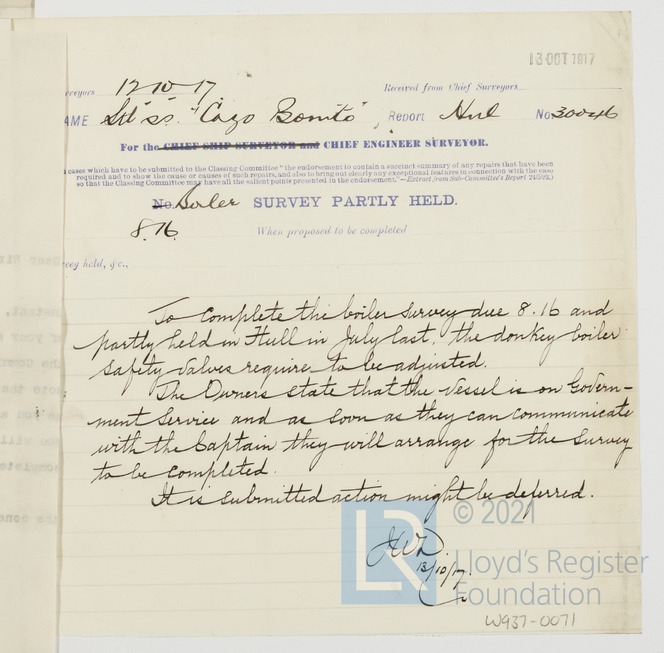 13 OCT 1917
rveyors 12-10-17 Received from Chief Surveyors
AME Stl s.s. "Cayo Bonito", Report Hul No 30046
For the CHIEF SHIP SURVEYOR and CHIEF ENGINEER SURVEYOR.
n cases which have to be submitted to the Classing Committee "the endorsement to contain a succinct summary of any repairs that have been
required and to show the cause or causes of such repairs, and also to bring out clearly any exceptional features in connection with the case
so that the Classing Committee may have all the salient points presented in the endorsement."—Extract from Sub-Committee's Report
No. Boiler SURVEY PARTLY HELD.
8.16. When proposed to be completed
vey held, &c.,
To complete the boiler survey due 8.16 and
partly held in Hull in July last, the donkey boiler
safety valves require to be adjusted.
The Owners state that the vessel is on Govern-
ment Service and as soon as they can communicate
with the Captain they will arrange for the survey
to be completed.
It is submitted action might be deferred.
13/10/17.
LR
© 2021
Lloyd's Register
Foundation
W937-0071